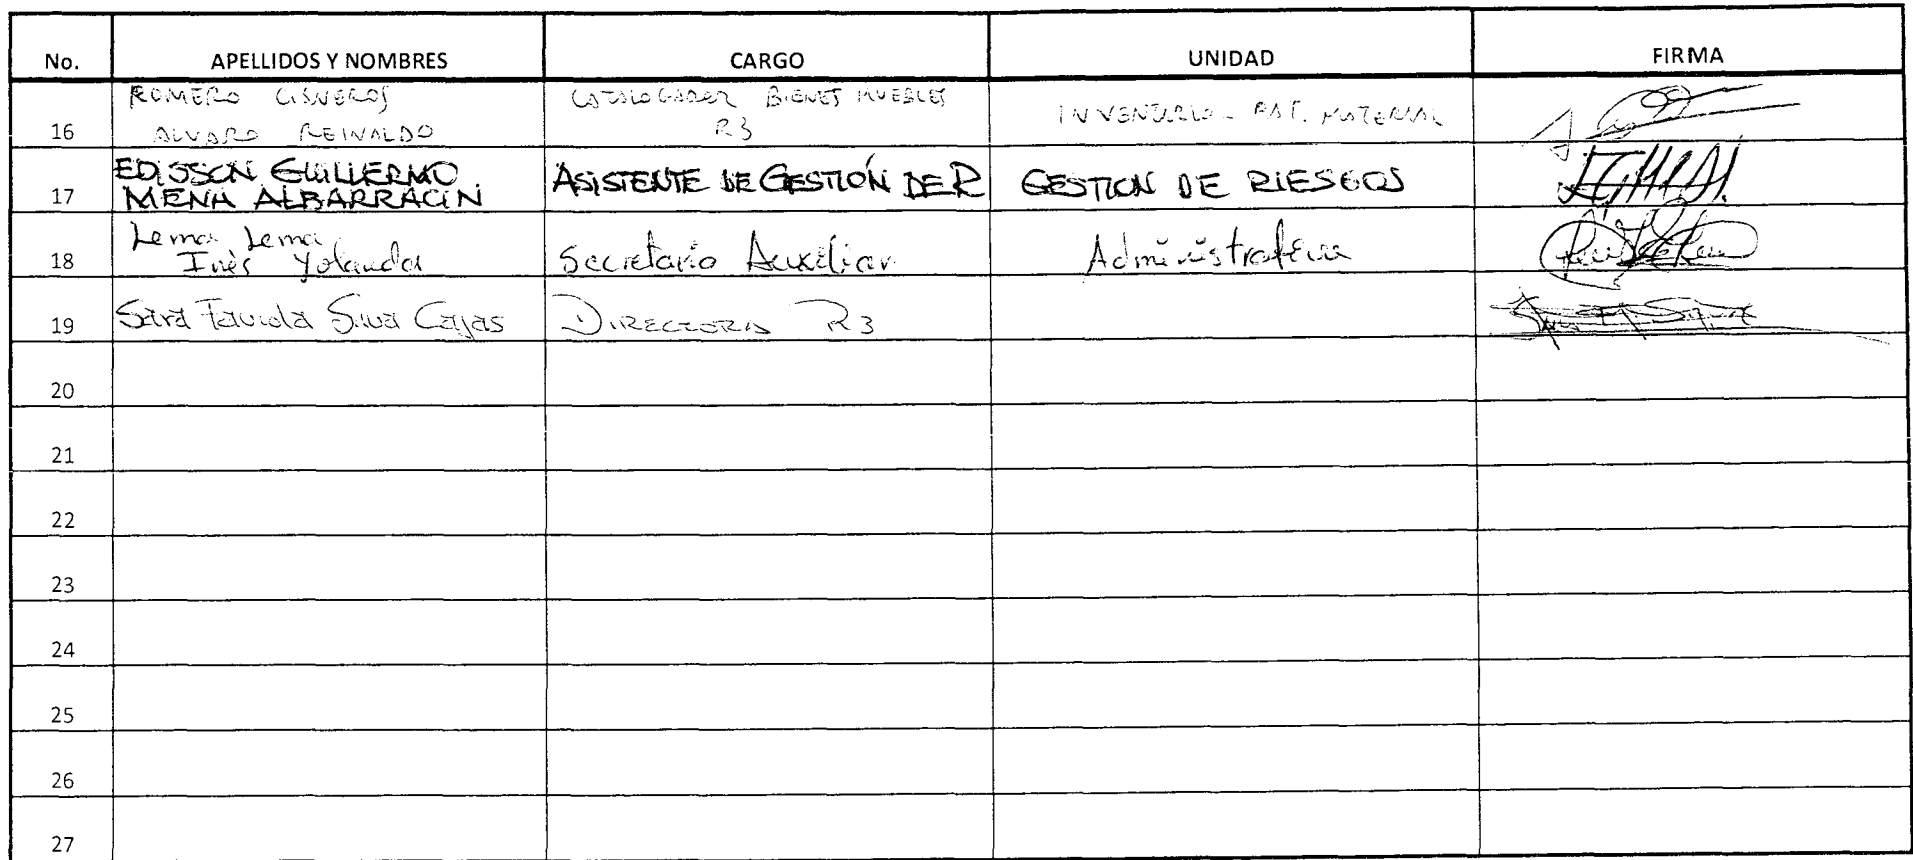 No. APELLIDOS Y NOMBRES CARGO UNIDAD FIRMA
ROMERO CISNEROS CATALOGADOR BIENES MUEBLES
16 ALVARO REINALDO R3 INVENTARIO - PAT. MATERIAL
EDISSON GUILLERMO
17 MENA ALBARRACIN ASISTENTE DE GESTIÓN DE R GESTION DE RIESGOS
Lema Lema
18 Inès Yolanda Secretaria Auxiliar Administrativa
19 Sara Silva Cajas DIRECTORA R3
20
21
22
23
24
25
26
27